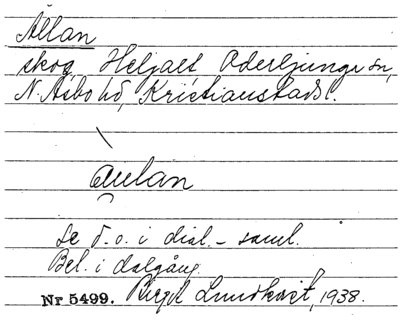 Allan
skog, Heljalt, Oderljunga sn,
N. Åsbo hd, Kristianstads l.
aulan
Se d.o. i dial. - saml.
Bel. i dalgång.
Nr 5499. Birgit Lundkvist, 1938.